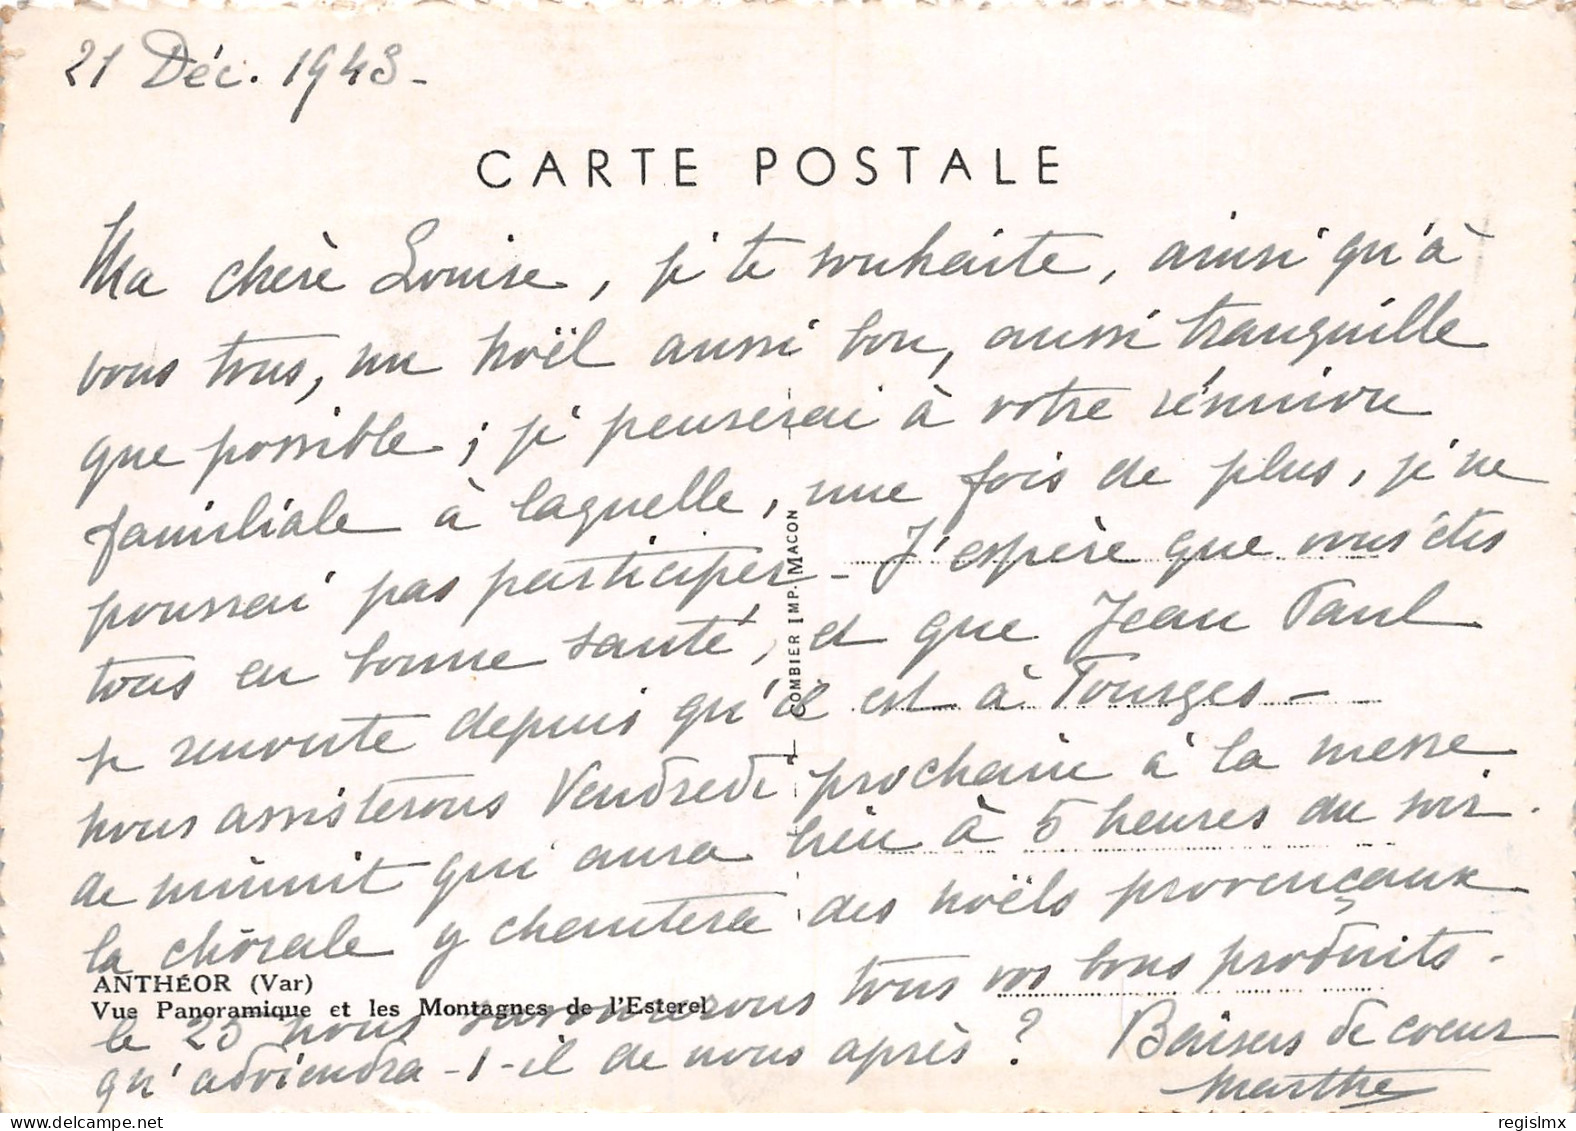 21 Déc. 1943 -
CARTE POSTALE
Ma chère Louise, je te souhaite, ainsi qu'à
vous tous, un noël aussi bon, aussi tranquille
que possible ; je penserai à votre réunion
familiale à laquelle, une fois de plus, je ne
pourrai pas participer - J'espère que vous êtes
tous en bonne santé, et que Jean Paul
se remonte depuis qu'il est à Tourges -
nous assisterons Vendredi prochain à la messe
de minuit qui aura lieu à 5 heures du soir.
la chorale y chantera des noëls provençaux
ANTHÉOR (Var)
Vue Panoramique et les Montagnes de l'Esterel
le 25 nous savourerons tous vos bons produits.
qu'adviendra-t-il de nous après ? Baisers de coeur
Marthe
COMBIER IMP. MACON
regislmx